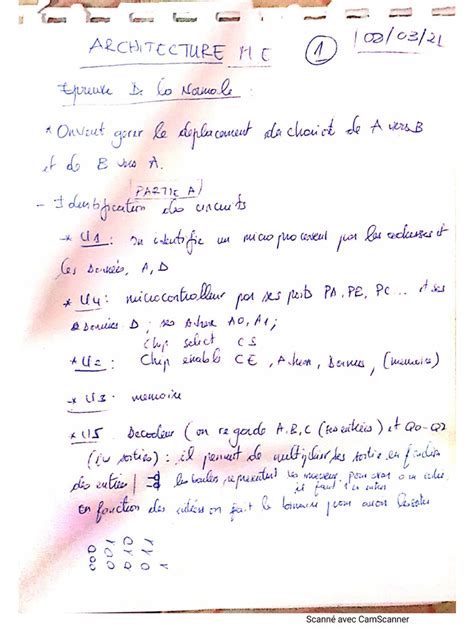 ARCHITECTURE MC 1 08/03/21
Epreuve D. La Normale :
* On veut gerer le deplacement de chariot de A vers B
et de B vers A.
PARTIE A
- Identification des circuits
* U1 : on identifie un microprocesseur par les adresses et
les Données, A, D
* U4 : microcontrolleur par ses ports PA, PB, PC... et ses
Données D ; ses Adress A0, A1 ;
chip select CS
* U2 : Chip enable CE, Adress, Données, (memoire)
* U3 : memoire
* U5 Decodeur (on regarde A, B, C (nos entrées) et Q0-Q7
(sorties) : il permet de multiplier les sorties en fonction
des entrées les boules representent les inverseurs pour avoir
il faut
en fonction des on fait le pour avoir
000
100
010
110
Scanné avec CamScanner